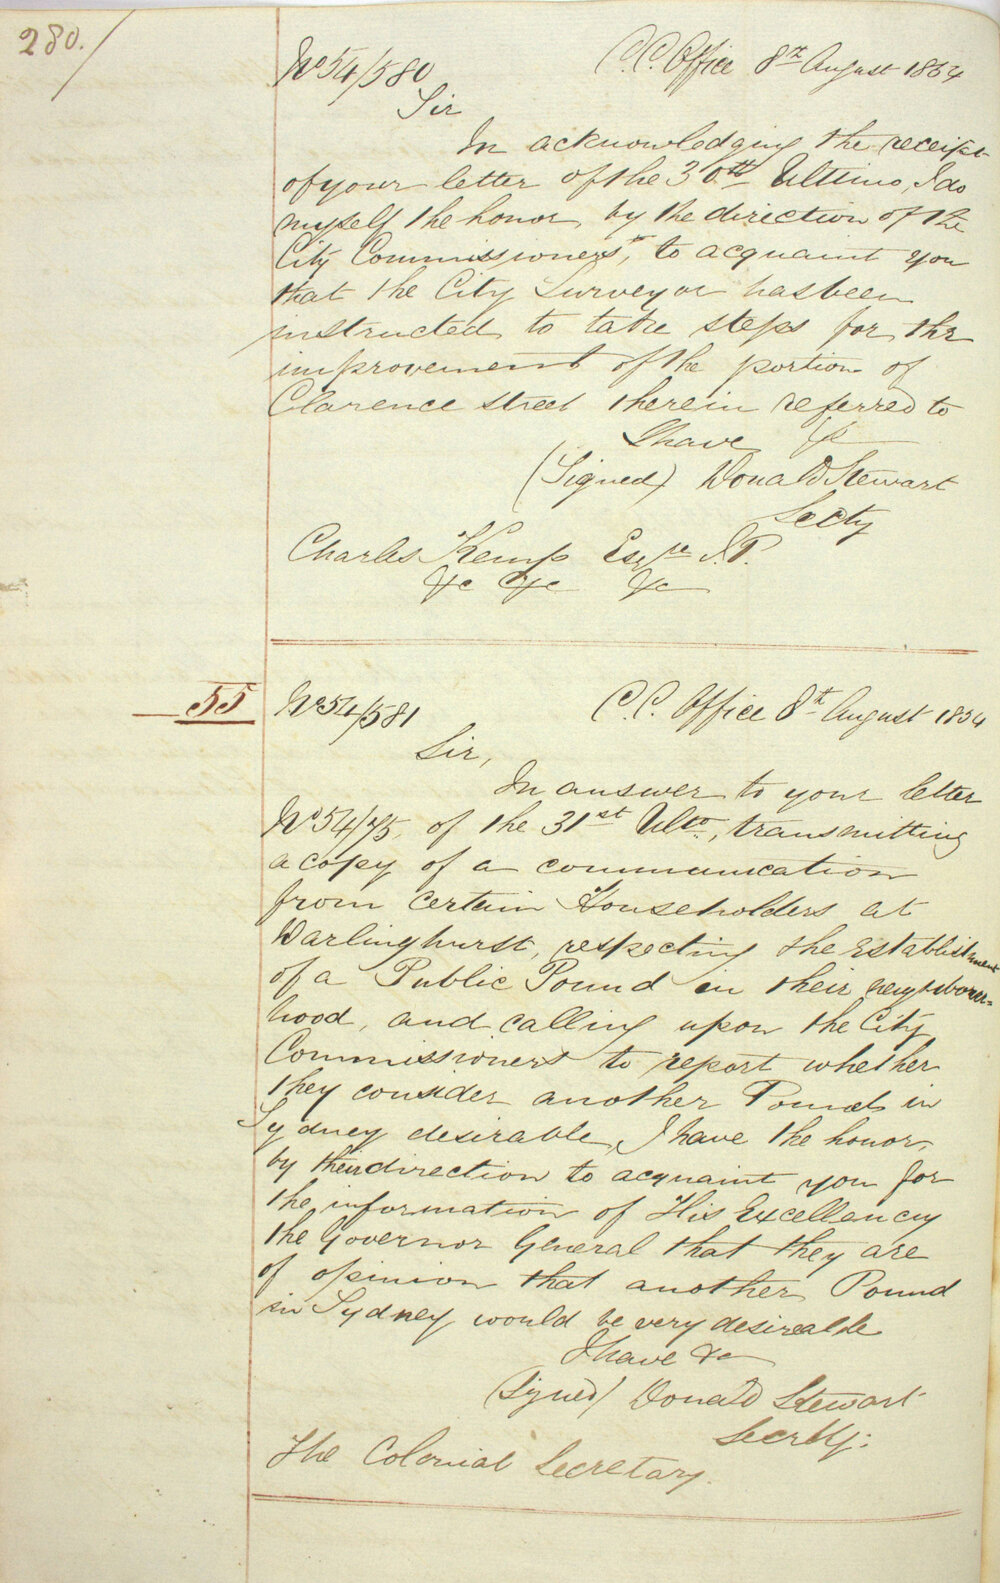 280.
No 54/580 C.C. Office 8th August 1854
Sir
In acknowledging the receipt
of your letter of the 30th Ultimo, I do
myself the honor, by the direction of the
City Commissioners, to acquaint you
that the City Surveyor has been
instructed to take steps for the
improvement of the portion of
Clarence street therein referred to
I have &c
(Signed) Donald Stewart
Secty
Charles Kemp Esqre J.P.
&c &c &c
55
No 54/581 C.C. Office 8th August 1854
Sir,
In answer to your letter
No 54/75, of the 31st Ulto, transmitting
a copy of a communication
from certain Householders at
Darlinghurst, respecting the Establishment
of a Public Pound in their neighbour-
hood, and calling upon the City
Commissioners to report whether
they consider another Pound in
Sydney desirable, I have the honor,
by their direction to acquaint you for
the information of His Excellency
the Governor General that they are
of opinion that another Pound
in Sydney would be very desireable
I have &c
(Signed) Donald Stewart
Secrty:
The Colonial Secretary.